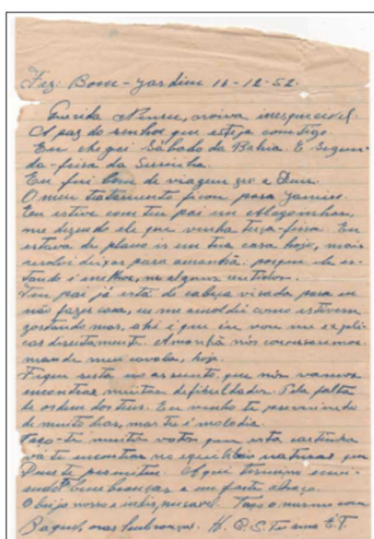 Faz: Bom-Jardim 16-12-52.
Querida Nenem, noiva inesquecivel.
A paz do senhor que esteja comtigo.
Eu cheguei Sábado da Bahia. E Segun-
da-feira da Serrinha.
Eu fui bem de viagem graças a Deus.
O meu tratamento ficou para Janeiro.
Eu estive com teu pai em
me dizendo ele que vinha terça-feira. Eu
estava de plano ir em tua casa hoje, mais
resolvi deixar para amanhã. porque ele es-
tando é melhor, em alguns sentidos.
Teu pai já está de cabeça virada para eu
não fazer casa, eu me
gostando mas, ahi é que eu vou me expli-
car diretamente. Amanhã nós conversaremos.
mande meu cavalo, hoje.
Fique certa no assunto, que nós vamos
encontrar muitas dificuldades. Pela falta
de ordem dos teus. Eu venho te prevenindo
de muito dias, mas tu é
Faço-te muitos votos que esta cartinha
vá te encontrar no equilibrio natural que
Deus te permitiu. Aqui termino envi-
ando lembranças e um forte abraço.
O beijo nosso é indispensavel. Faço o mesmo com
Raquel, lembranças.